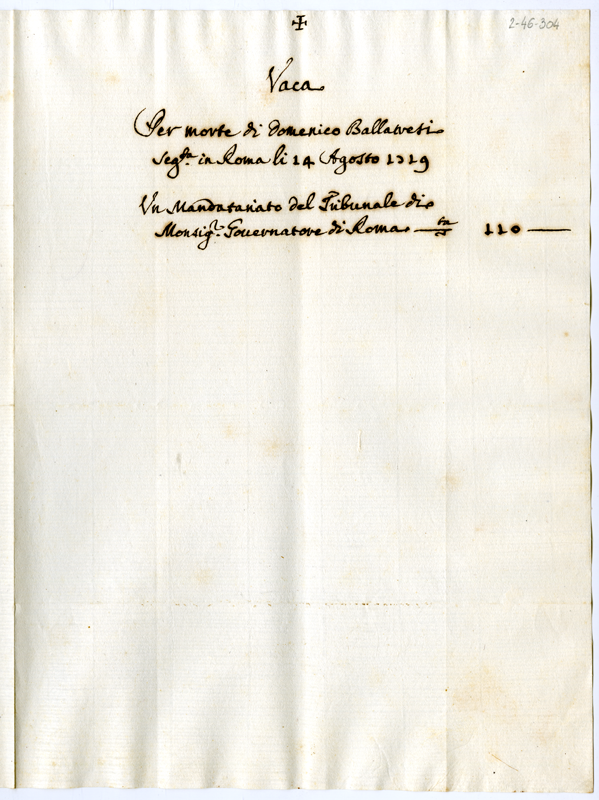 ✠
2-46-304
Vaca
Per morte di Domenico Ballatresi
seg.ta in Roma li 14 Agosto 1719
Un Mandatariato del Tribunale di
Monsig.r Governatore di Roma — 110 —